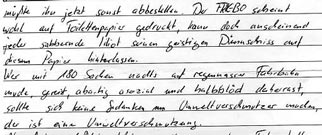 müßte ihn jetzt sonst abbestellen. Der FREBO scheint
wohl auf Toilettenpapier gedruckt, kann doch anscheinend
jeder sabbernde Idiot seinen geistigen Dünnschiss auf
diesem Papier hinterlassen.
Wer mit 180 Sachen nachts auf regennasser Fahrbahn
mude, spreit, abartig asozial und halbblöd daherrast,
sollte sich keine Gedanken um Umweltverschmutzer machen,
der ist eine Umweltverschmutzung.